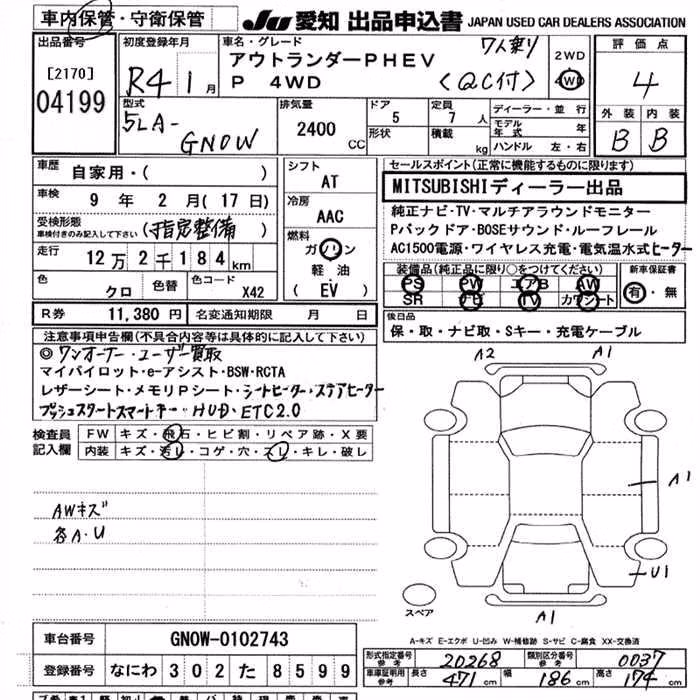 車内保管・守衛保管
JU 愛知 出品申込書 JAPAN USED CAR DEALERS ASSOCIATION
出品番号
[2170]
04199
初度登録年月
R4 1月
車名・グレード
アウトランダーPHEV 7人乗り
P 4WD <QC付>
2WD
4WD
評価点
4
外装 内装
B B
型式
5LA-
GN0W
排気量
2400
CC
ドア
5
形状
定員
7人
積載
kg
ディーラー・並行
モデル年式 年
ハンドル 左・右
車歴
自家用・( )
車検
9年 2月(17日)
受検形態
車検付きのみ記入して下さい
(指定整備)
走行
12万2千184km
色
クロ
色替
色コード
X42
シフト
AT
冷房
AAC
燃料
ガソリン
軽・油
( EV )
R券 11,380円 名変通知期限 月 日
セールスポイント(正常に機能するものに限ります)
MITSUBISHIディーラー出品
純正ナビ・TV・マルチアラウンドモニター
Pバックドア・BOSEサウンド・ルーフレール
AC1500電源・ワイヤレス充電・電気温水式ヒーター
装備品(純正品に限り○をつけてください)
PS PW エアB AW
SR ナビ TV カワシート
新車保証書
有・無
後日品
保・取・ナビ取・Sキー・充電ケーブル
注意事項申告欄(不具合内容等は具体的に記入して下さい)
◎ワンオーナー・ユーザー買取
マイパイロット・e-アシスト・BSW・RCTA
レザーシート・メモリPシート・シートヒーター・ステアヒーター
プッシュスタートスマートキー・HUD・ETC2.0
検査員記入欄
FW キズ・飛石・ヒビ割・リペア跡・X要
内装 キズ・汚レ・コゲ・穴・スレ・キレ・破レ
AWキズ
各A・U
A2 A1
A1
U1
A1
スペア
A-キズ E-エクボ U-凹み W-補修跡 S-サビ C-腐食 XX-交換済
車台番号 GN0W-0102743
登録番号 なにわ 302 た 8599
形式指定番号 参考 20268 類別区分番号 参考 0037
車庫証明用 参考 長さ 471cm 幅 186cm 高さ 174cm